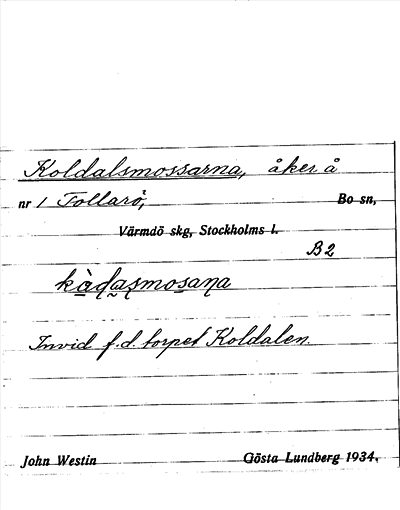 Koldalsmossarna, åker å
nr 1 Tollarö, Bo sn,
Värmdö skg, Stockholms l.
B2
Invid f.d. torpet Koldalen.
John Westin Gösta Lundberg 1934.